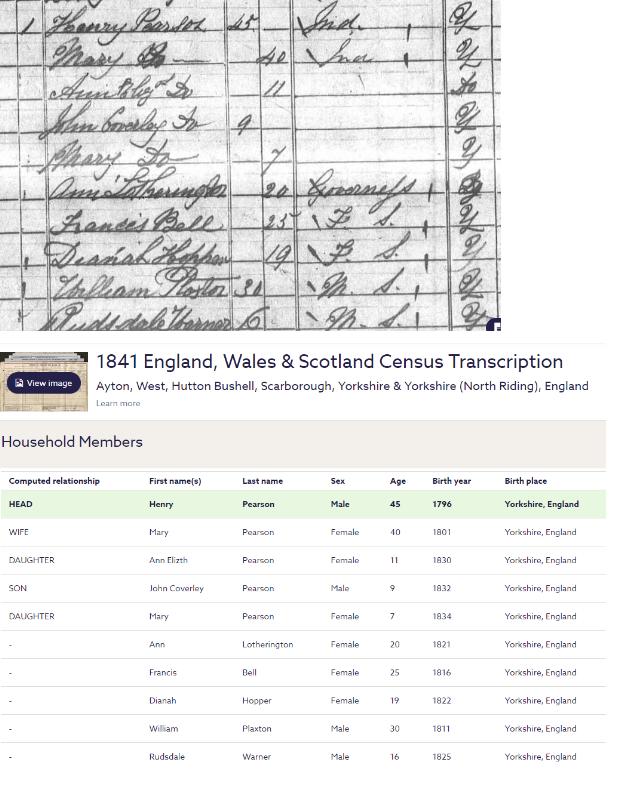 1 Henry Pearson 45 Ind. Y
Mary Do 40 Ind Y
Ann Elizth Do 11 Do
John Coverley Do 9 Y
Mary Do 7 Y
Ann Lotherington 20 Governess Y
Francis Bell 25 F. S. Y
Dianah Hopper 19 F. S. Y
William Plaxton 30 M. S. Y
Rudsdale Warner M. S. Y
View image
1841 England, Wales & Scotland Census Transcription
Ayton, West, Hutton Bushell, Scarborough, Yorkshire & Yorkshire (North Riding), England
Learn more
Household Members
Computed relationship First name(s) Last name Sex Age Birth year Birth place
HEAD Henry Pearson Male 45 1796 Yorkshire, England
WIFE Mary Pearson Female 40 1801 Yorkshire, England
DAUGHTER Ann Elizth Pearson Female 11 1830 Yorkshire, England
SON John Coverley Pearson Male 9 1832 Yorkshire, England
DAUGHTER Mary Pearson Female 7 1834 Yorkshire, England
- Ann Lotherington Female 20 1821 Yorkshire, England
- Francis Bell Female 25 1816 Yorkshire, England
- Dianah Hopper Female 19 1822 Yorkshire, England
- William Plaxton Male 30 1811 Yorkshire, England
- Rudsdale Warner Male 16 1825 Yorkshire, England